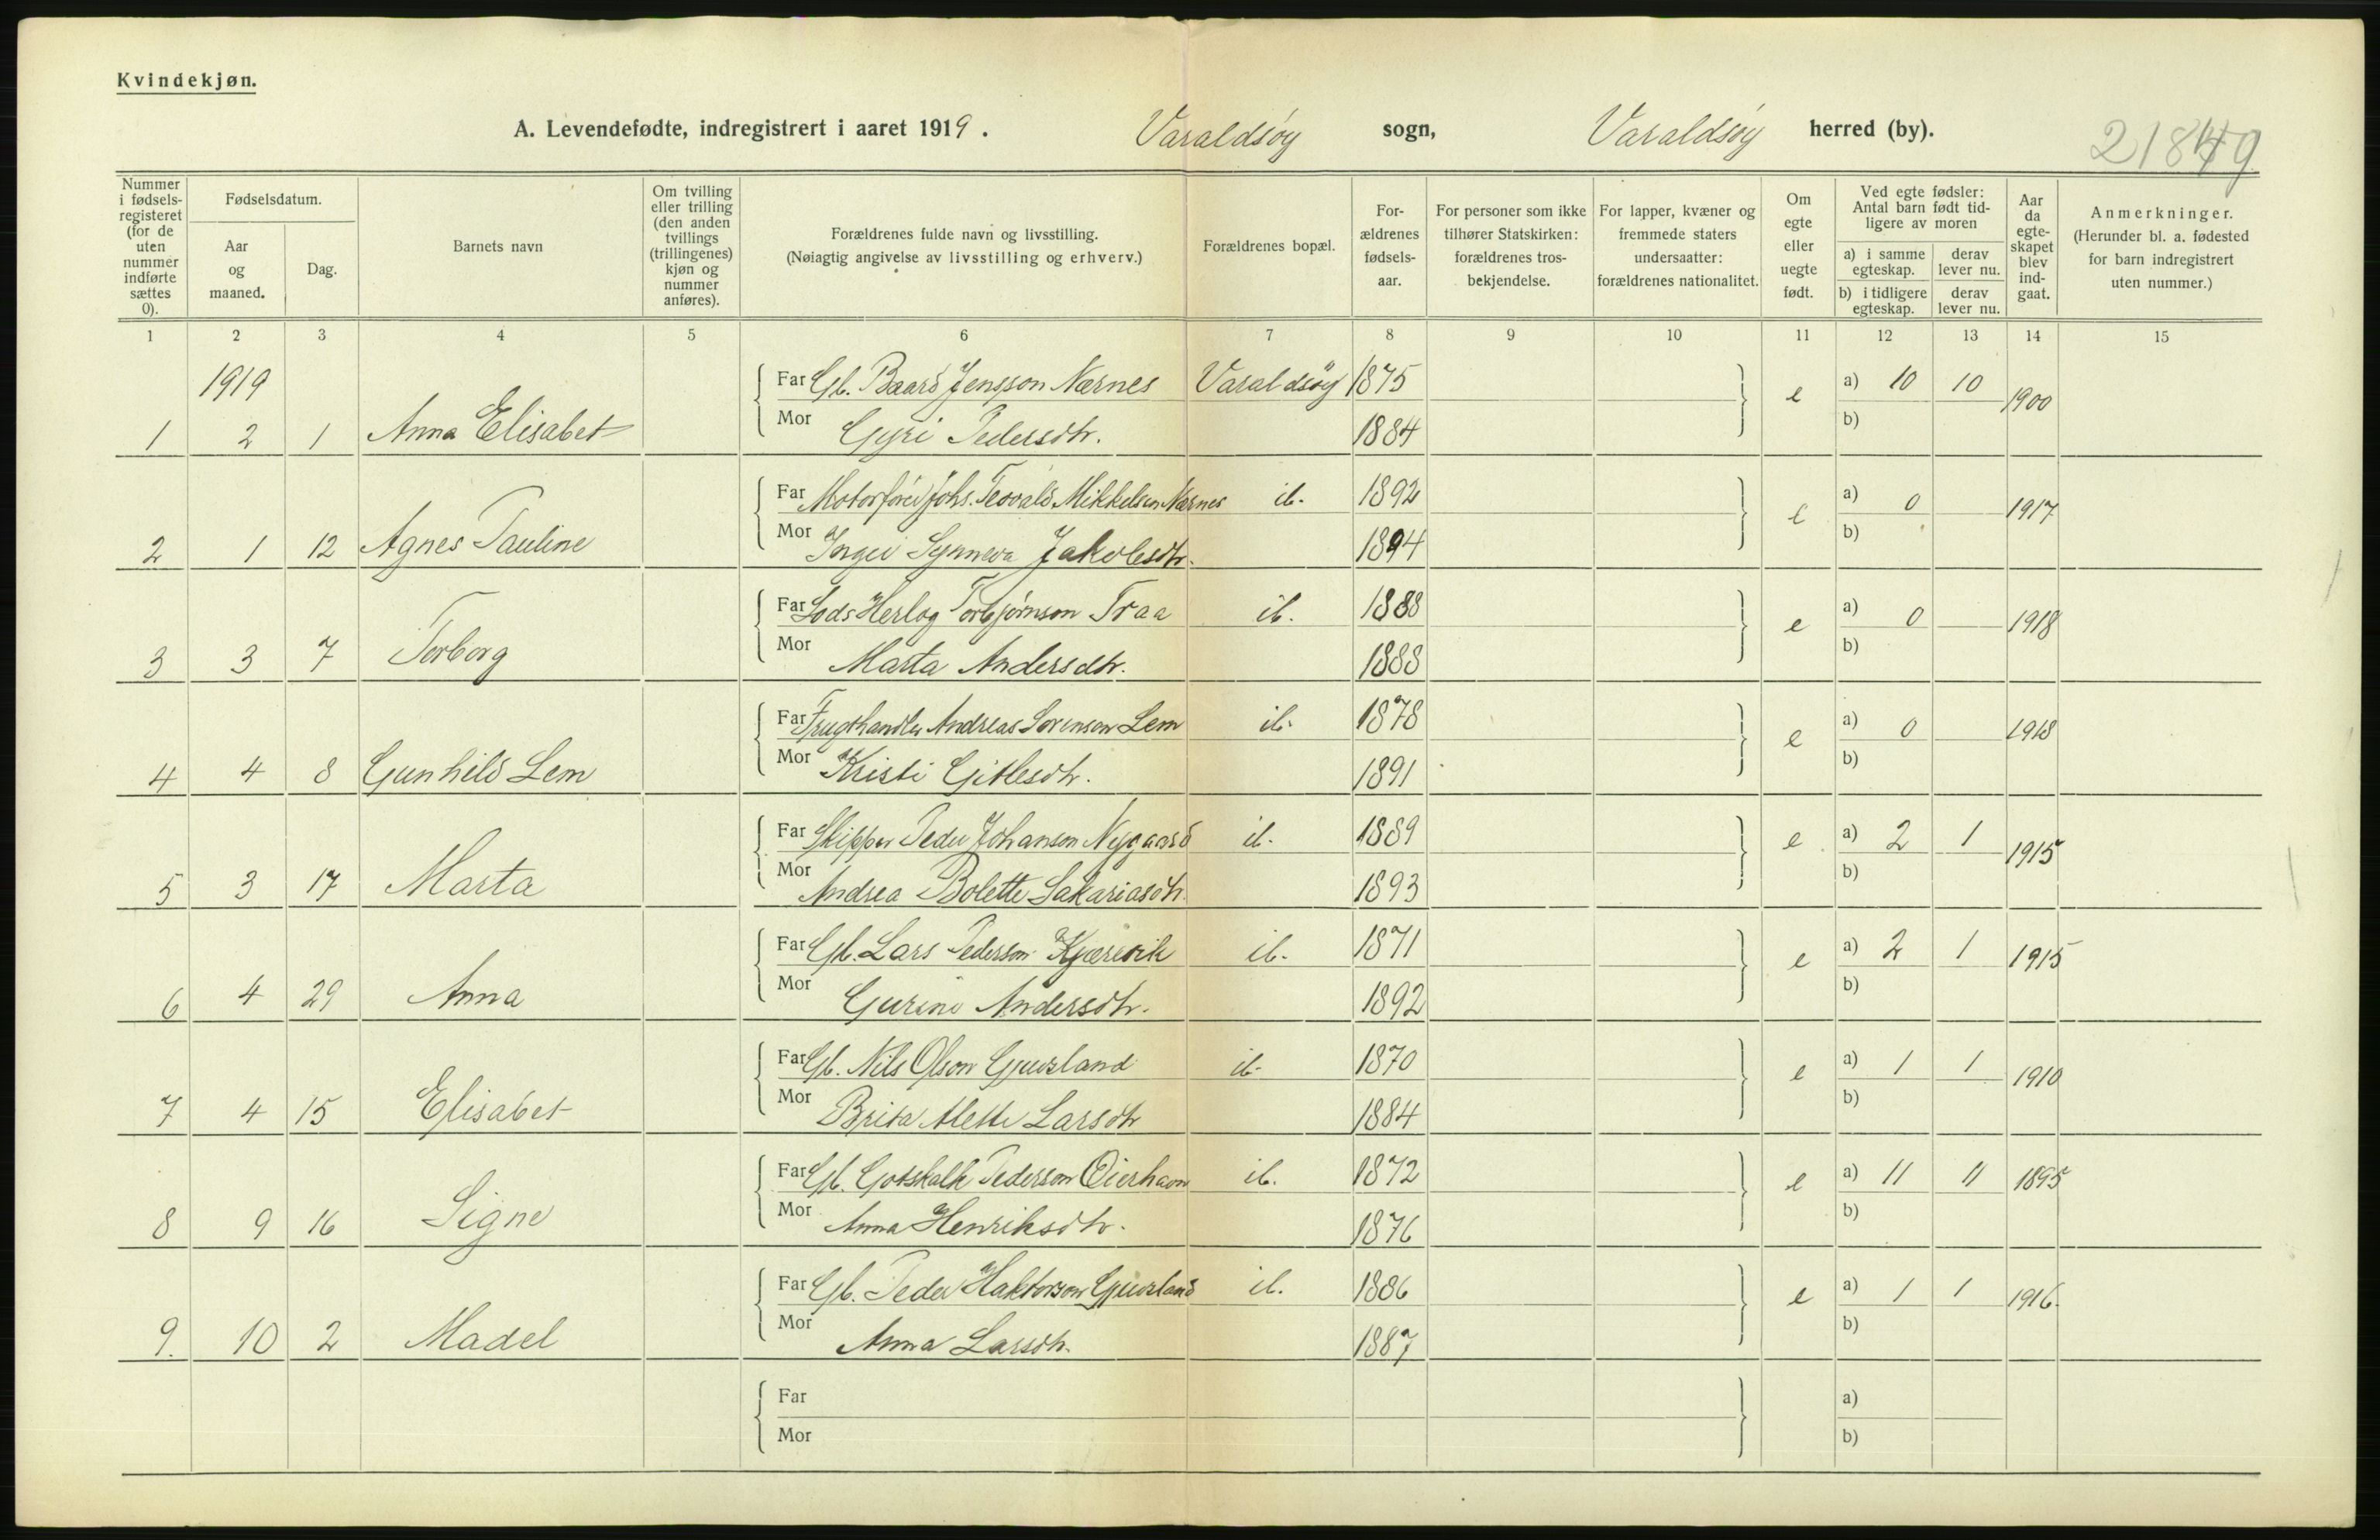 Kvindekjøn.
A. Levendefødte, indregistrert i aaret 1919. Varaldsøy sogn, Varaldsøy herred (by).
Nummer i fødsels-registeret (for de uten nummer indførte sættes 0).
Fødselsdatum.
Aar og maaned.
Dag.
Barnets navn
Om tvilling eller trilling (den anden tvillings (trillingenes) kjøn og nummer anføres).
Forældrenes fulde navn og livsstilling.
(Nøiagtig angivelse av livsstilling og erhverv.)
Forældrenes bopæl.
For-ældrenes fødsels-aar.
For personer som ikke tilhører Statskirken: forældrenes tros-bekjendelse.
For lapper, kvæner og fremmede staters undersaatter: forældrenes nationalitet.
Om egte eller uegte født.
Ved egte fødsler: Antal barn født tid-ligere av moren
a) i samme egteskap. derav lever nu.
b) i tidligere egteskap. derav lever nu.
Aar da egte-skapet blev ind-gaat.
Anmerkninger.
(Herunder bl. a. fødested for barn indregistrert uten nummer.)
1 2 3 4 5 6 7 8 9 10 11 12 13 14 15
1919
Far Gb. Baard Jensson Nernes Varaldsøy 1875 e a) 10 10 1900
1 2 1 Anna Elisabet Mor Gyri Pedersdtr. 1884 b)
Far Johs. Teovald Mikkelsen Nernes ib. 1892 e a) 0 1917
2 1 12 Agnes Pauline Mor Synneva Jakobsdtr. 1894 b)
Far Lods Herlog Torbjørnson Traa ib. 1888 e a) 0 1918
3 3 7 Torborg Mor Marta Andersdtr. 1888 b)
Far Frugthandler Andreas Sørenson Lem ib. 1878 e a) 0 1918
4 4 8 Gunhild Lem Mor Kristi Gitlesdtr. 1891 b)
Far Skipper Peder Johanson Nygaard ib. 1889 e a) 2 1 1915
5 3 17 Marta Mor Andrea Bolette Sakariasdtr. 1893 b)
Far Gb. Lars Pederson Kjærevik ib. 1871 e a) 2 1 1915
6 4 29 Anna Mor Gurine Andersdtr. 1892 b)
Far Gb. Nils Olson Gjuvsland ib. 1870 e a) 1 1 1910
7 4 15 Elisabet Mor Brita Mette Larsdtr 1884 b)
Far Gb. Gotskalk Pederson Øierhavn ib. 1872 e a) 11 11 1895
8 9 16 Signe Mor Anna Henriksdtr. 1876 b)
Far Gb. Peder Haktorson Gjuvsland ib. 1886 e a) 1 1 1916.
9. 10 2 Madel Mor Anna Larsdtr. 1887 b)
Far a)
Mor b)